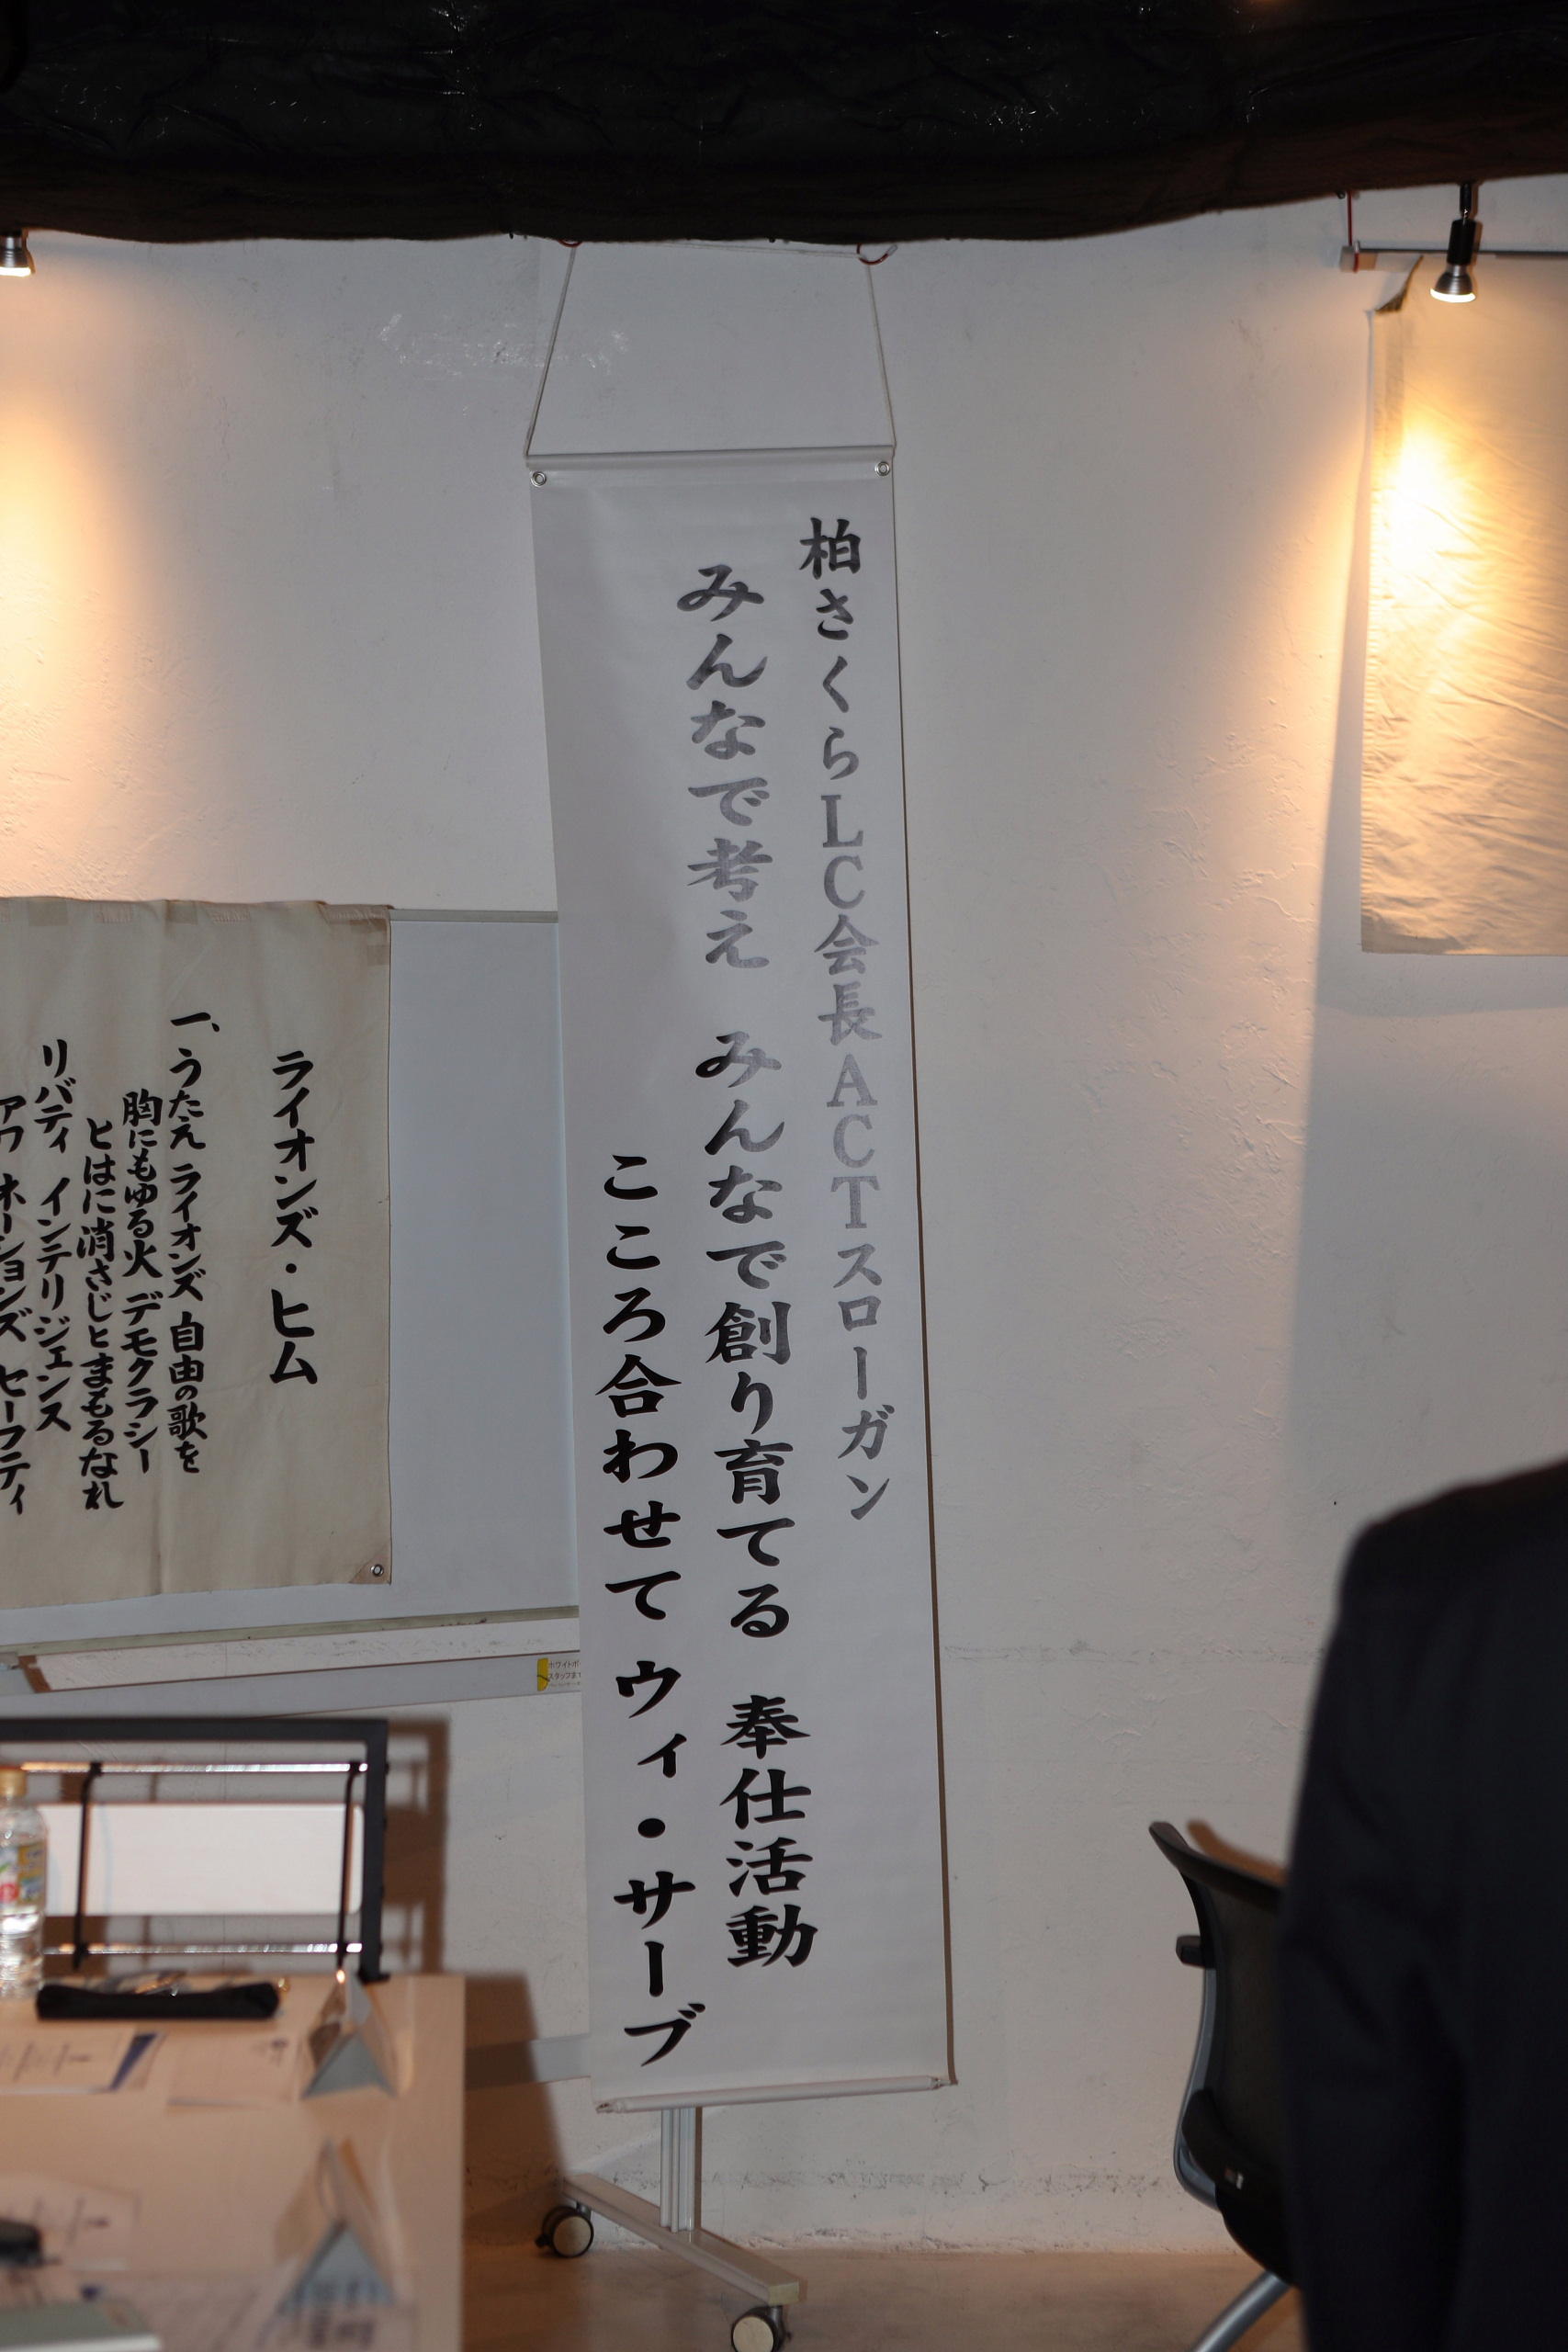 柏さくらLC会長ACTスローガン
みんなで考え　みんなで創り育てる　奉仕活動
こころ合わせて ウィ・サーブ
ライオンズ・ヒム
一、うたえ ライオンズ 自由の歌を
胸にもゆる火 デモクラシー
とはに消さじとまもるなれ
リバティ インテリジェンス
アワ ネーションズ セーフティ